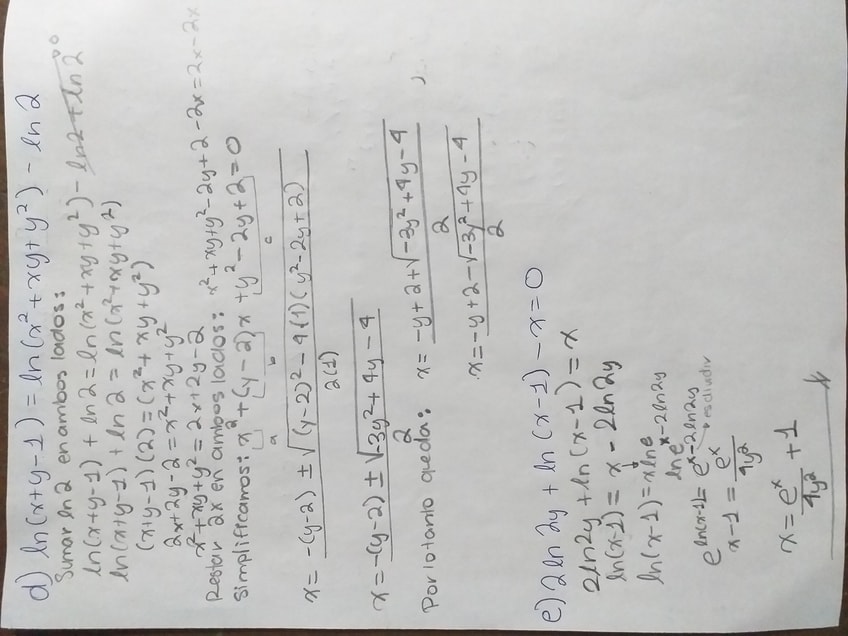 d) ln(x+y-1) = ln(x²+xy+y²) - ln 2
Sumar ln 2 en ambos lados:
ln(x+y-1) + ln 2 = ln(x²+xy+y²) - ln 2 + ln 2
ln(x+y-1) + ln 2 = ln(x²+xy+y²)
(x+y-1)(2) = (x²+xy+y²)
2x+2y-2 = x²+xy+y²
x²+xy+y² = 2x+2y-2
Restar 2x en ambos lados: x²+xy+y²-2y+2-2x = 2x-2x
Simplificamos: x²+(y-2)x+y²-2y+2=0
a b c
x = -(y-2) ± √(y-2)²-4(1)(y²-2y+2)
2(1)
x = -(y-2) ± √-3y²+4y-4
2
Por lo tanto queda: x = -y+2+√-3y²+4y-4 ;
2
x = -y+2-√-3y²+4y-4
2
e) 2 ln 2y + ln(x-1) - x = 0
2 ln 2y + ln(x-1) = x
ln(x-1) = x - 2 ln 2y
ln(x-1) = x ln e
ln e x-2ln2y
e ln(x-1) = e x-2ln2y
x-1 = e^x
4y²
x = e^x + 1
4y²